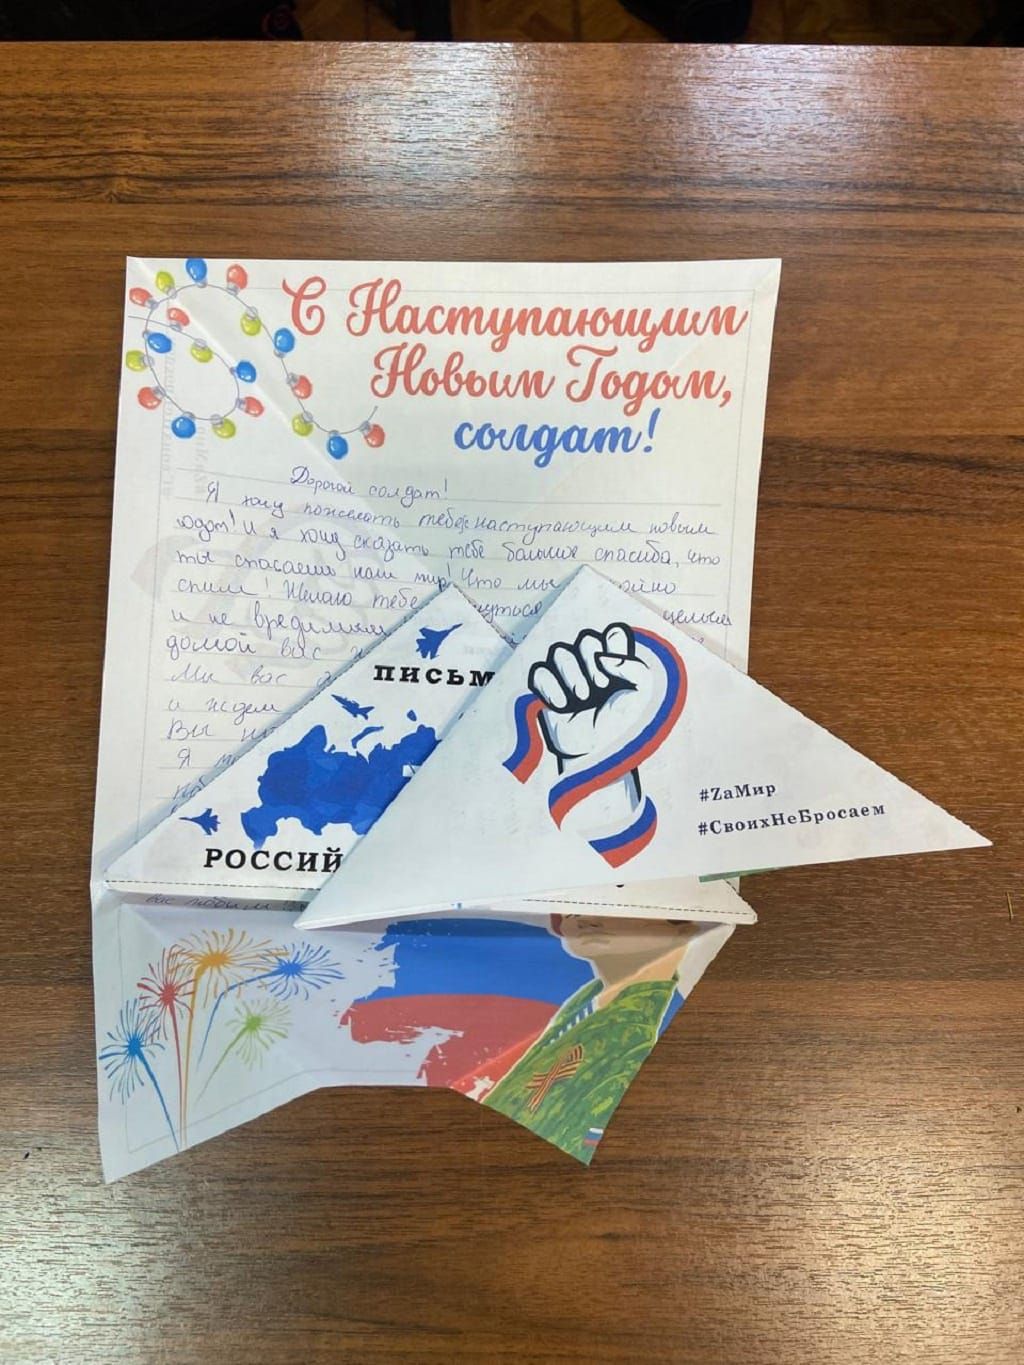 С Наступающим
Новым Годом,
солдат!
Дорогой солдат!
Я хочу пожелать тебе с наступающим новым
годом! И я хочу сказать тебе большое спасиба, что
ты спасаешь наш мир! Что мы
спим! Желаю тебе целым
и не вредимым
домой вас
Мы вас
и ждем
Вы
Я
ПИСЬМ
РОССИЙ
#ZаМир
#СвоихНеБросаем
вас любим!